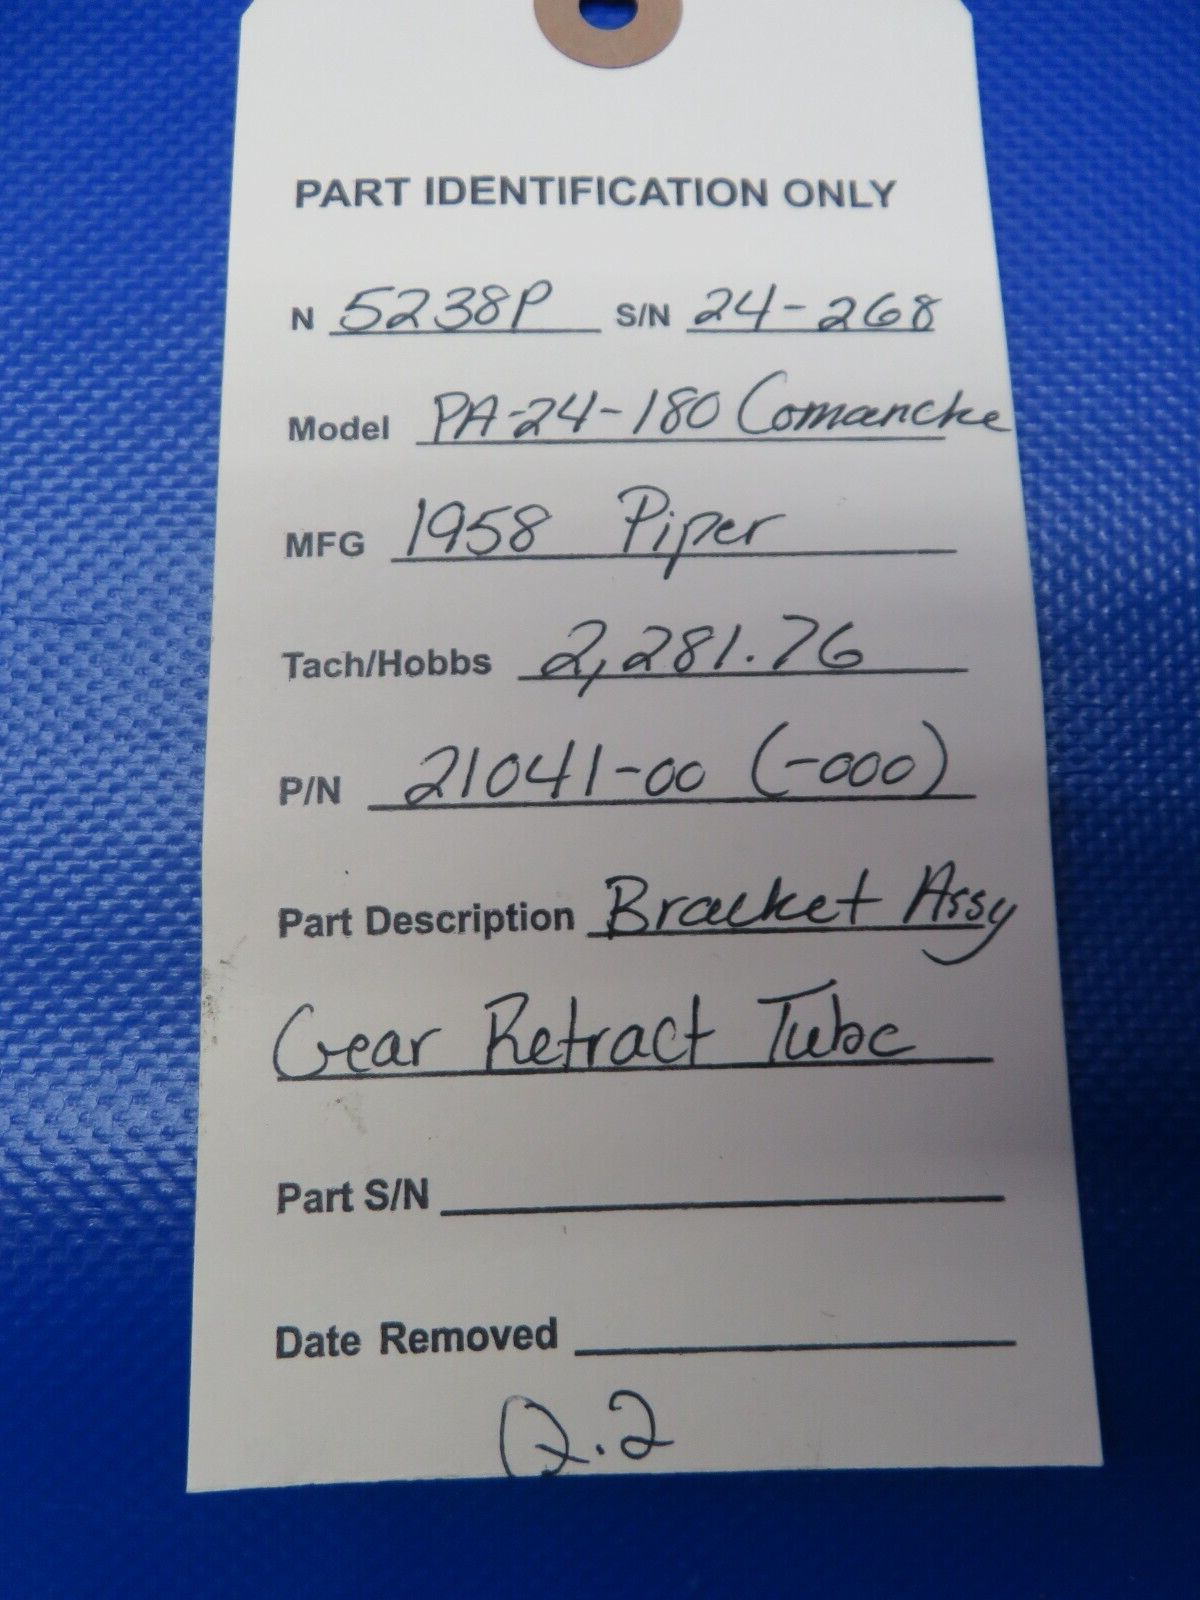 PART IDENTIFICATION ONLY
N 5238P S/N 24-268
Model PA-24-180 Comanche
MFG 1958 Piper
Tach/Hobbs 2,281.76
P/N 21041-00 (-000)
Part Description Bracket Assy
Gear Retract Tube
Part S/N
Date Removed
Q.2